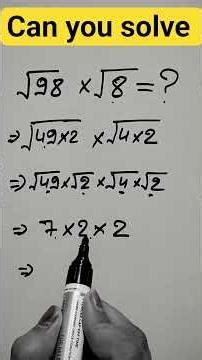 Can you solve
√98 × √8 = ?
⇒ √49×2 × √4×2
⇒ √49 × √2 × √4 × √2
⇒ 7 × 2 × 2
⇒